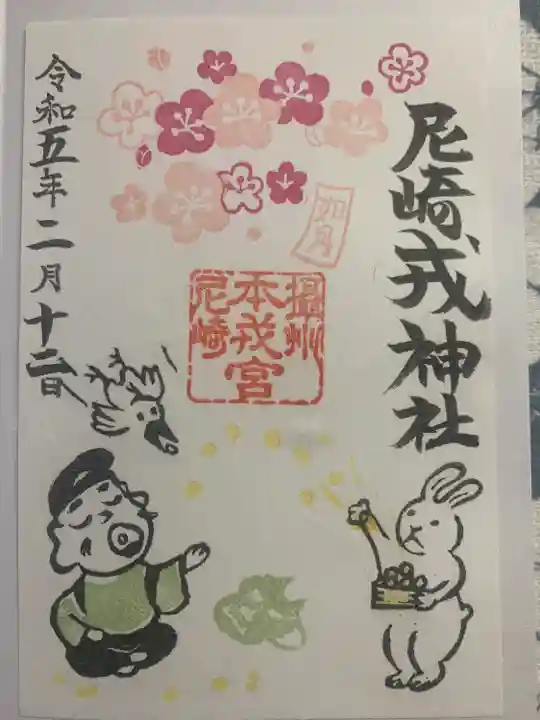 尼崎戎神社
如月
摂州
本戎宮
尼崎
令和五年二月十二日